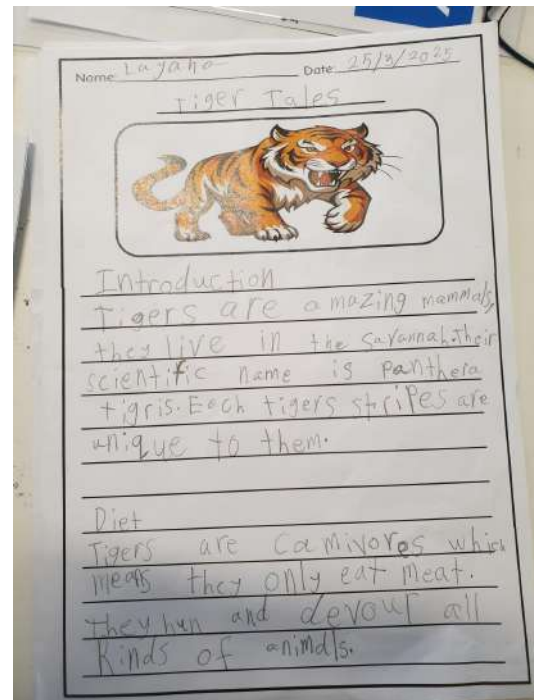 Name: Layana Date: 25/3/2025
Tiger Tales
Introduction
Tigers are amazing mammals,
they live in the savannah. Their
scientific name is Panthera
tigris. Each tigers stripes are
unique to them.
Diet
Tigers are carnivores which
means they only eat meat.
they hun and devour all
kinds of animals.